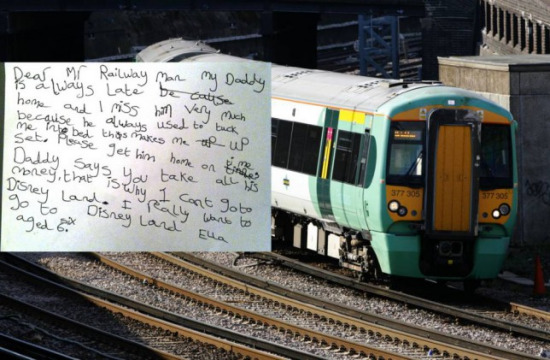 Dear Mr Railway man my Daddy
is always Late be cause
home and I miss him very much
because he always used to tuck
me into bed this makes me up
set. Please get him home on time
Daddy says you take all his
money, that is why I cant go to
Disney Land. I really want to
go to Disney Land
aged 6. six Ella
377 305
377 305